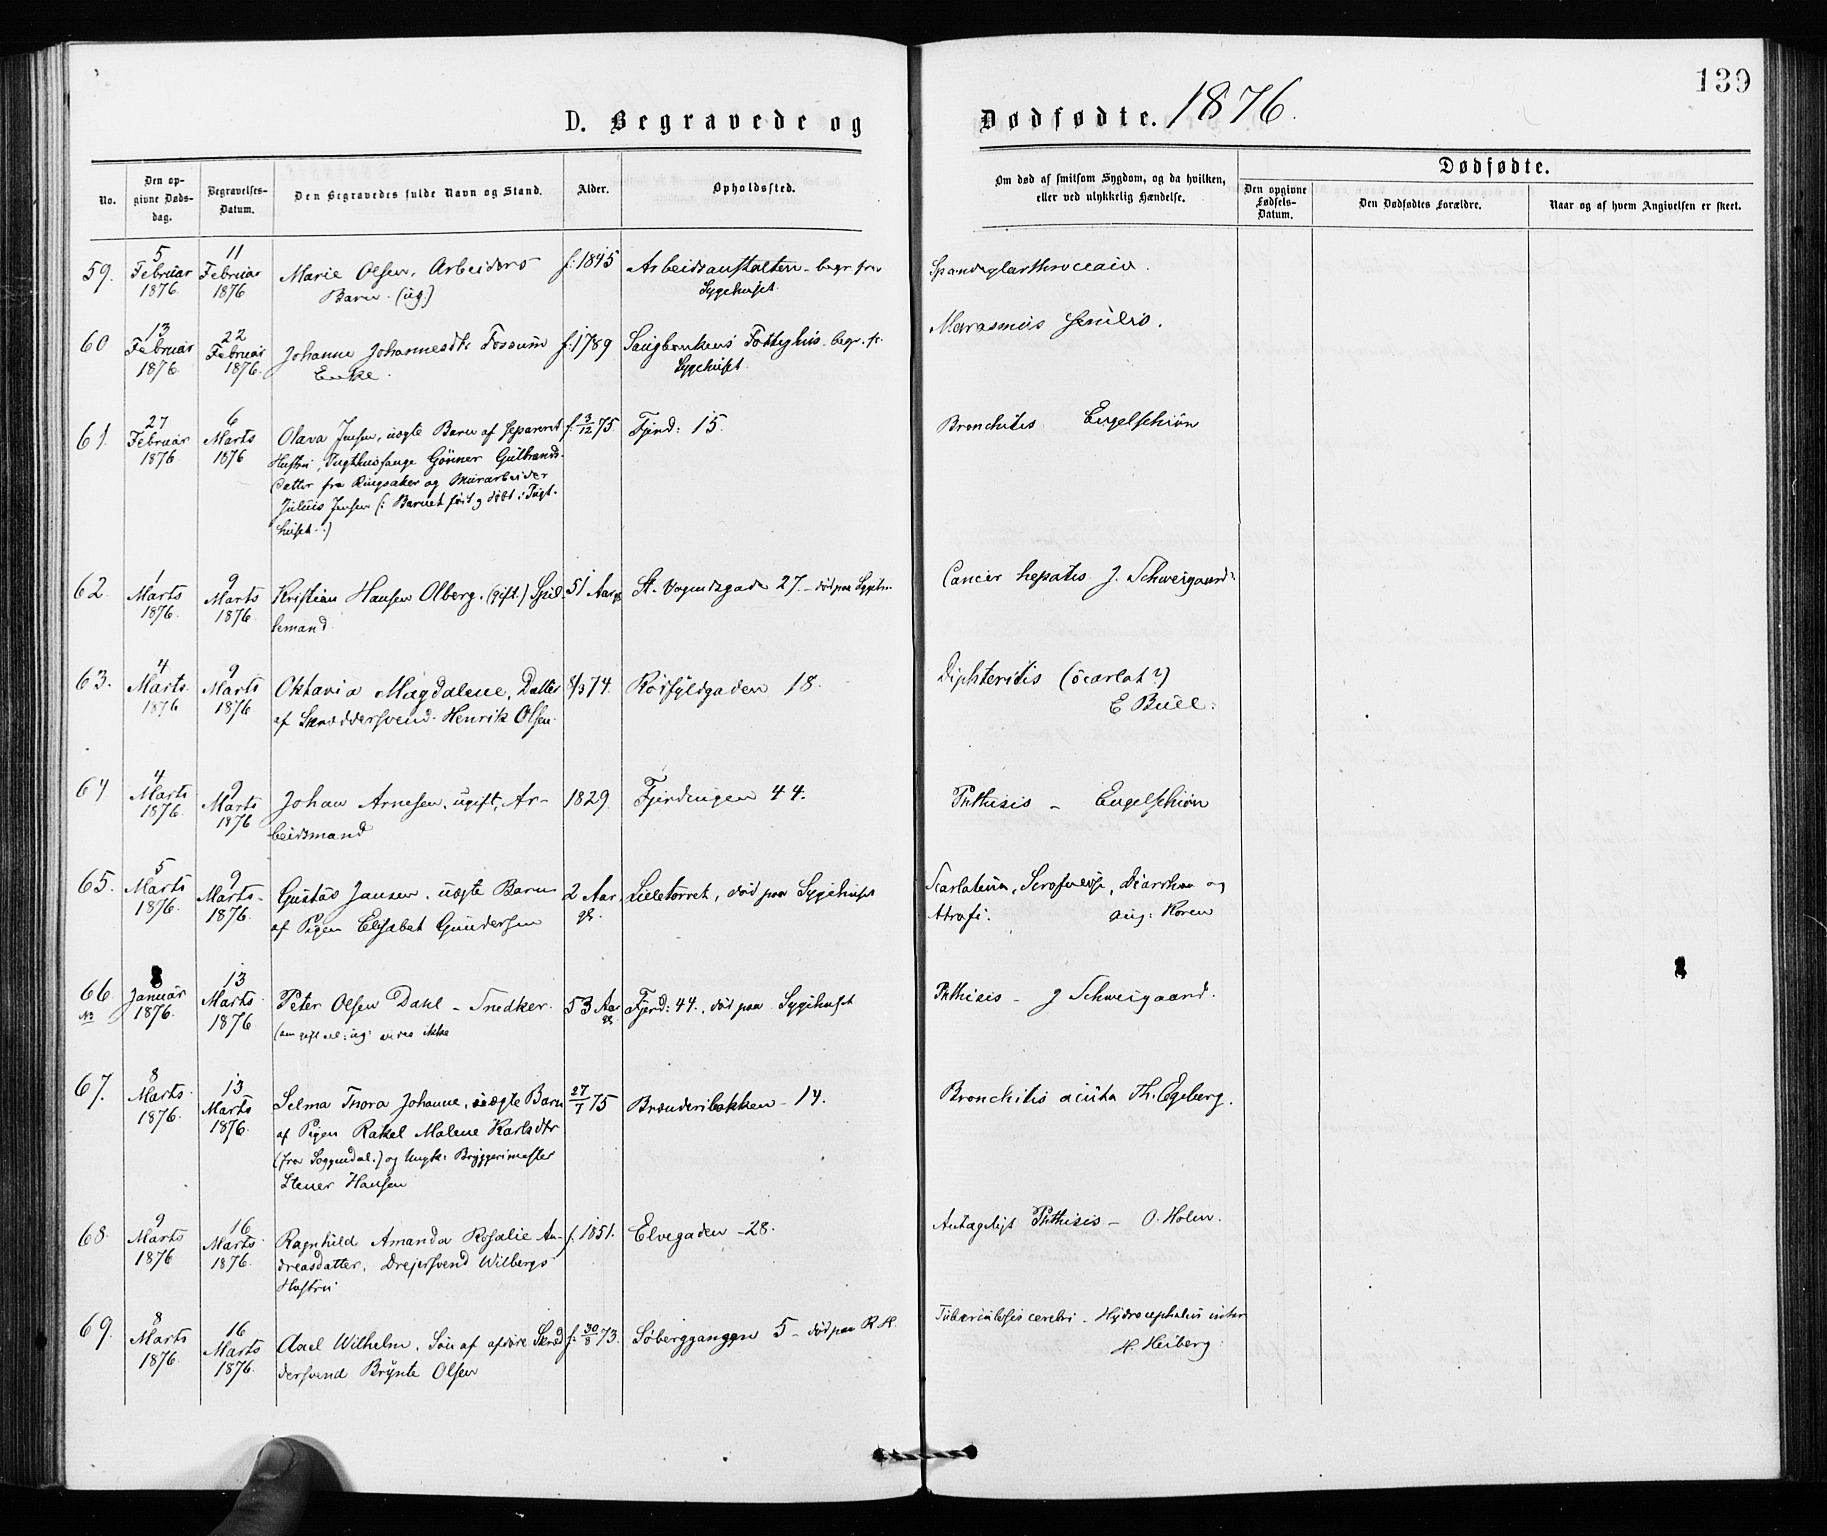 139
D. Begravede og Dødfødte. 1876.
No.
Den op-
givne Døds-
dag.
Begravelses-
Datum.
Den Begravedes fulde Navn og Stand.
Alder.
Opholdssted.
Om død af smitsom Sygdom, og da hvilken,
eller ved ulykkelig Hændelse.
Dødfødte.
Den opgivne
Fødsels-
Datum.
Den Dødfødtes Forældre.
Naar og af hvem Angivelsen er skeet.
59.
5
Februar
1876.
11
Februar
1876
Marie Olsen, Arbeiders
Barn. (ug.)
f. 1845
Arbeidsanstalten - begr. fra
Sygehuset.
60
13
Februar
1876.
22
Februar
1876.
Johanne Johannesdtr Fossum
Enke.
f. 1789
Saugbankens Fattighus - begr. fr.
Sygehuset.
Marasmus senilis.
61.
27
Februar
1876.
6
Marts
1876
Olava Jensen, uægte Barn af separeret
Hustru, Tugthusfange Gunner Gulbrands-
datter fra Ringsaker og Murarbeider
Julius Jensen (: Barnet født og døbt i Tugt-
huset :)
f. 3/12 75.
Fjerd: 15.
Bronchitis Engelschiøn
62.
1
Marts
1876.
9
Marts
1876.
Kristian Hansen Olberg. (gift.) Spil-
lemand.
51 Aar gl.
St. Vognmdsgade 27. - død paa Sygehu.
Cancer hepatis J. Schweigaard.
63.
4
Marts.
1876
9
Marts
1876.
Oktavia Magdalene, Datter
af Skræddersvend Henrik Olsen.
8/3 74.
Rødfyldgaden 18.
Diphteritis (scarlat?)
E Bull.
64
4
Marts
1876.
9
Marts
1876
Johan Arnesen, ugift, Ar-
beidsmand
1829.
Fjerdingen 44.
Phthisis - Engelschiøn
65.
5
Marts
1876.
9
Marts.
1876.
Gustav Jansen, uægte Barn
af Pigen Elisabet Gundersen
2 Aar
gl.
Lilletorvet, død paa Sygehuset
Scarlatina, Scrofulose, Diarrhoe og
Atrofi. Aug: Koren
66
8
Januar
1876.
13
Marts
1876.
Peter Olsen Dahl - Snedker.
(om gift el: ug: vides ikke
53 Aar
gl.
Fjerd: 44., død paa Sygehuset
Phthisis - J Schweigaard.
67.
8
Marts.
1876.
13
Marts
1876.
Selma Thora Johanne, uægte Barn
af Pigen Rakel Malene Karlsdtr
(fra Soggendal.) og Ungk: Bryggerimester
Stener Hansen
27/7 75
Brænderibakken - 14.
Bronchitis acuta Th. Egeberg.
68.
9
Marts
1876
16
Marts
1876.
Ragnhild Amanda Rosalie An-
dreasdatter, Drejersvend Wilbergs
Hustru
f. 1851.
Elvegaden - 28.
Antagelig Phthisis - O. Holm.
69.
8
Marts
1876.
16
Marts
1876.
Axel Wilhelm, Søn af afdøde Skræd-
dersvend Brynte Olsen
f. 30/8 73.
Søberggangen 5 - død paa R.H.
Tuberculosis cerebri - Hydrocephalus inter
H. Heiberg.